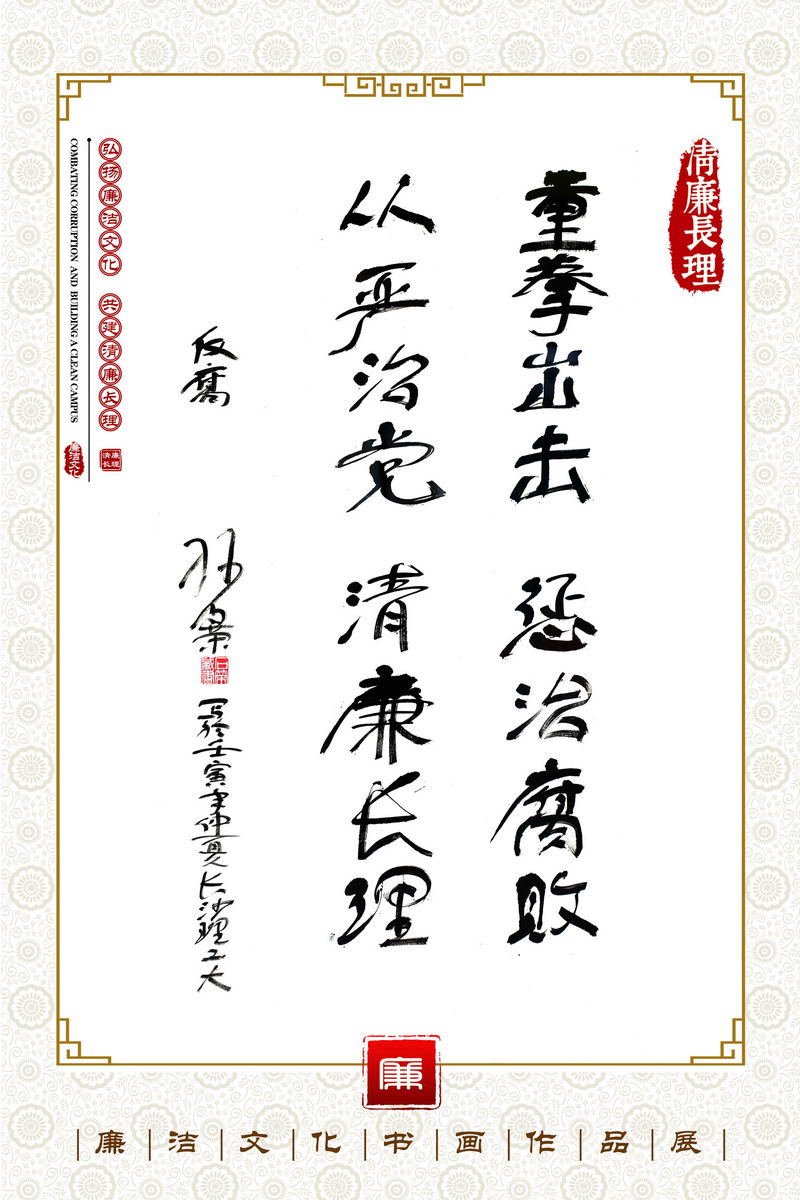 清廉長理
重拳出击 惩治腐败
从严治党 清廉长理
反腐
写於壬寅年仲夏长沙理工大
弘扬廉洁文化 共建清廉长理
COMBATING CORRUPTION AND BUILDING A CLEAN CAMPUS
廉洁文化
廉
廉洁文化书画作品展